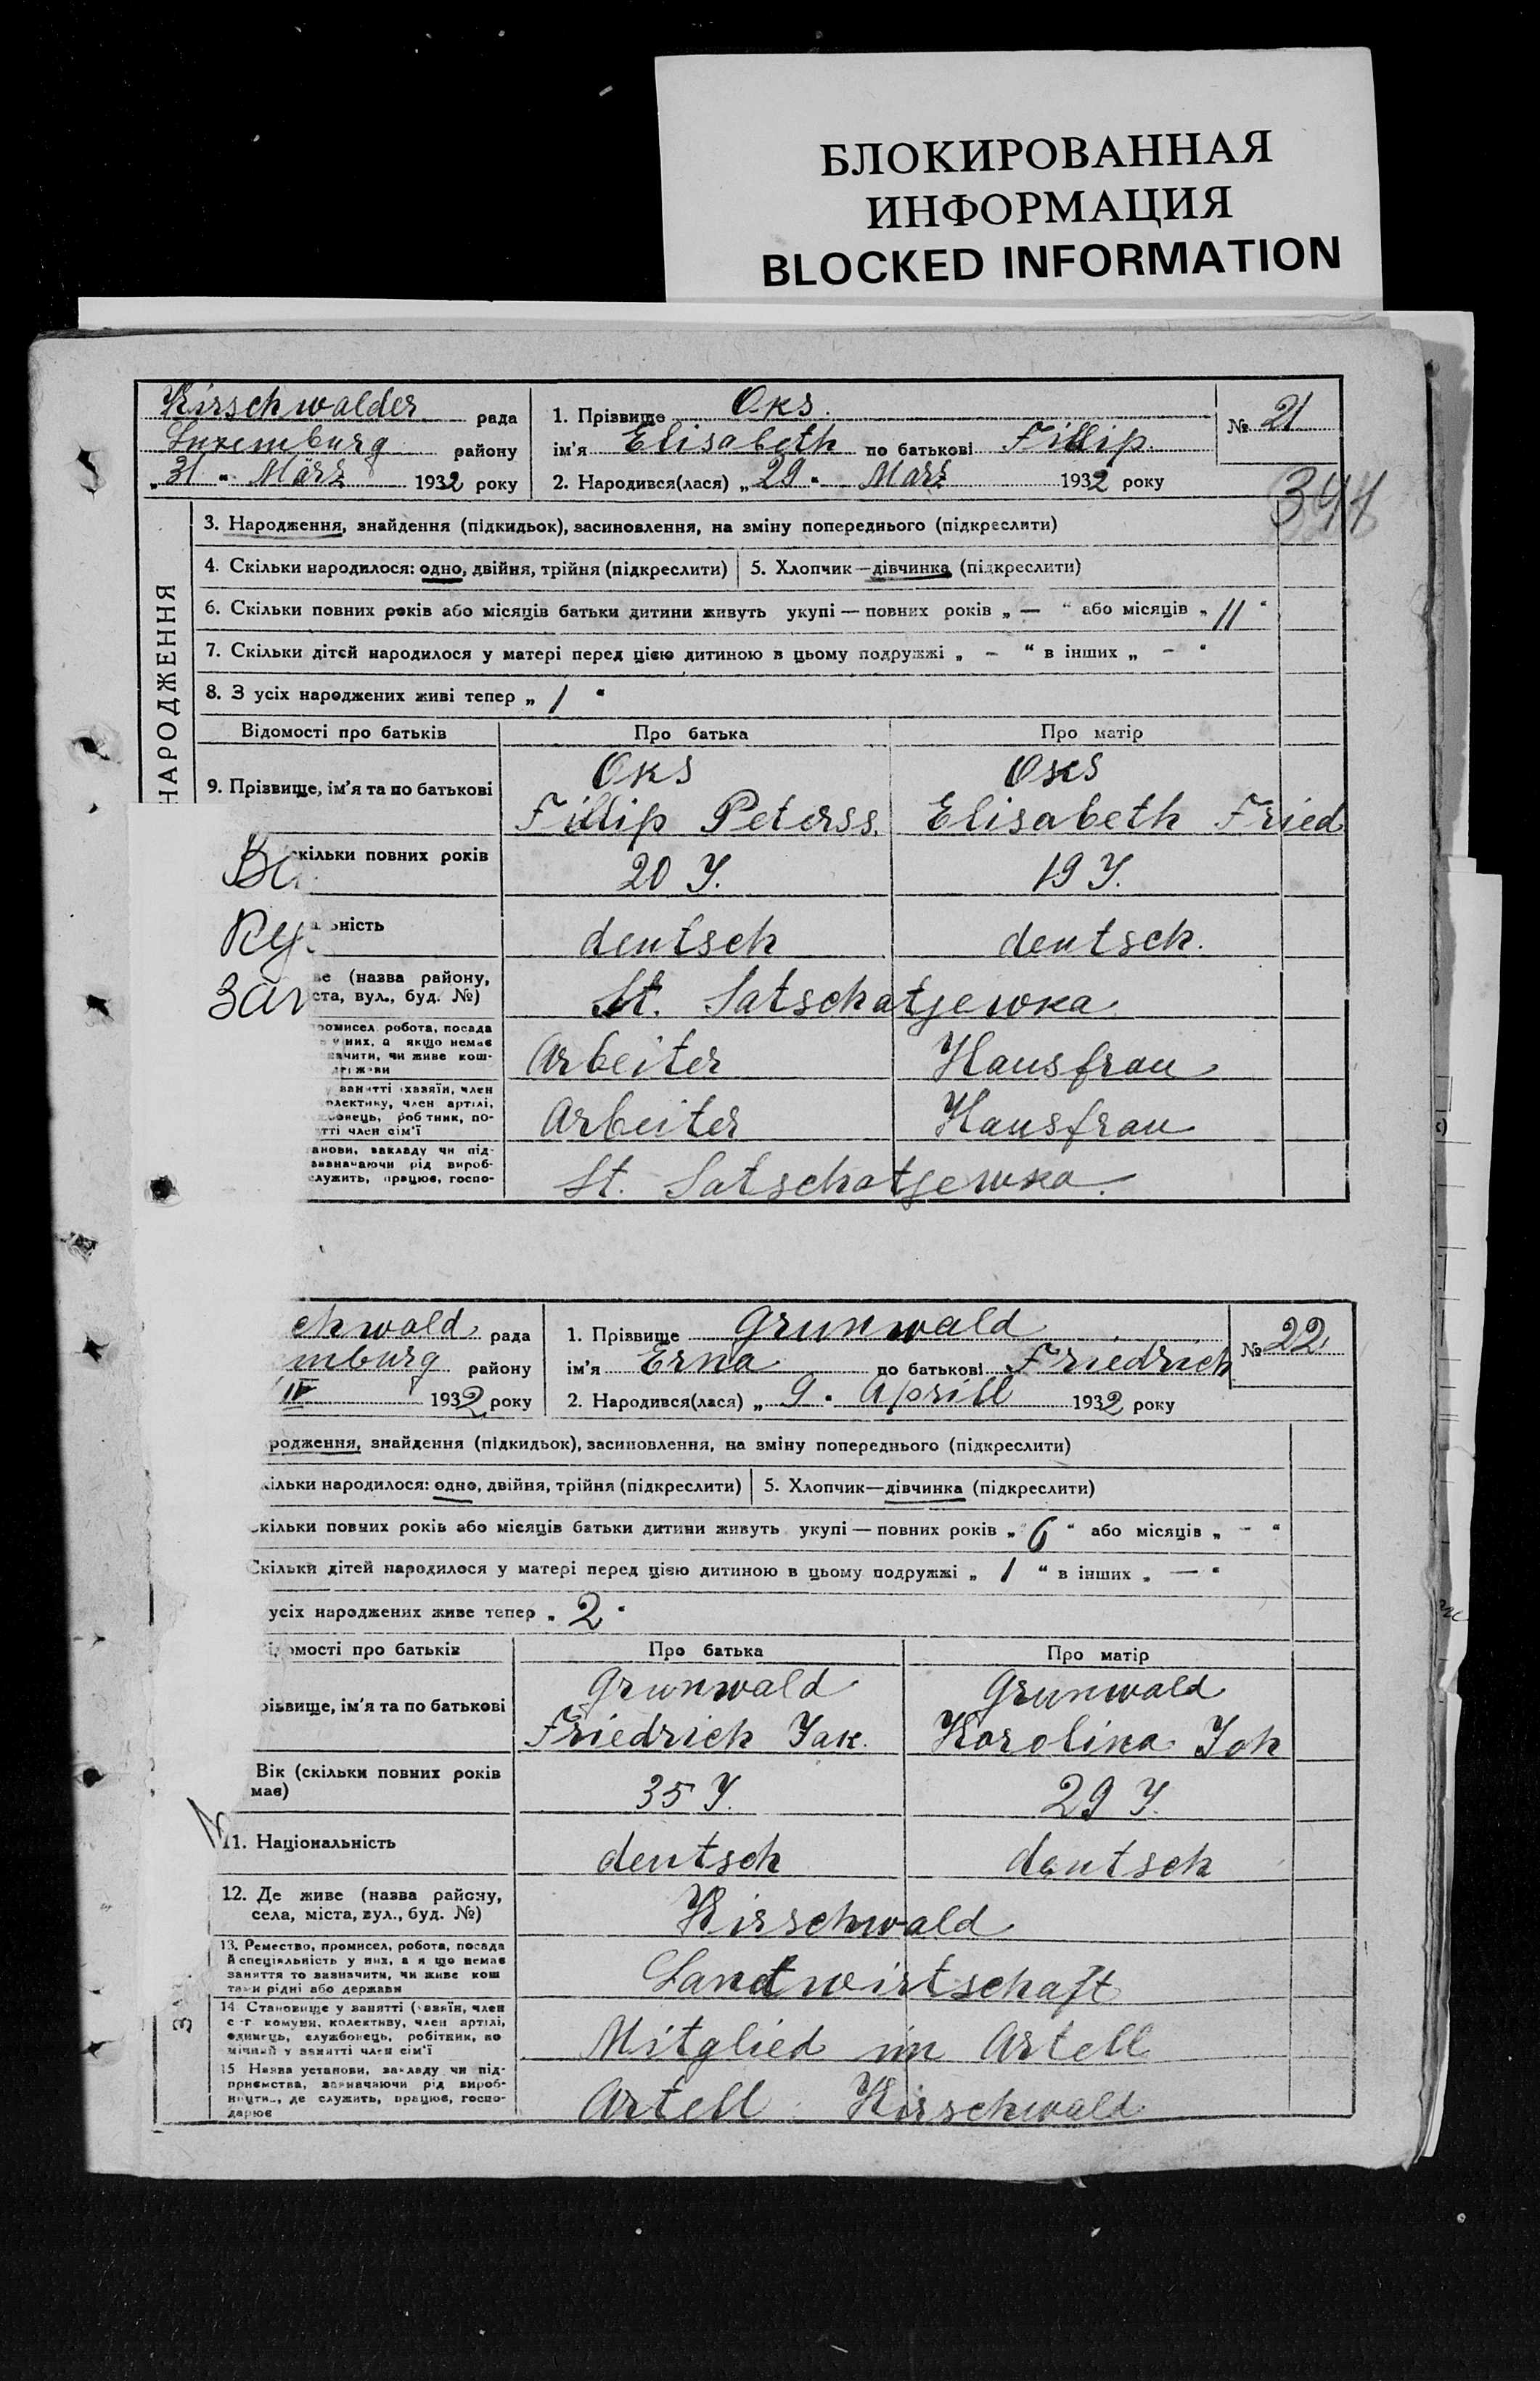 БЛОКИРОВАННАЯ
ИНФОРМАЦИЯ
BLOCKED INFORMATION
Kirschwalder рада
Luxemburg району
„31" März 1932 року
1. Прізвище Oks.
ім'я Elisabeth по батькові Fillip.
2. Народився(лася) „29" März 1932 року
№ 21
344
НАРОДЖЕННЯ
3. Народження, знайдення (підкидьок), засиновлення, на зміну попереднього (підкреслити)
4. Скільки народилося: одно, двійня, трійня (підкреслити) 5. Хлопчик—дівчинка (підкреслити)
6. Скільки повних років або місяців батьки дитини живуть укупі — повних років „ — " або місяців „ 11 "
7. Скільки дітей народилося у матері перед цією дитиною в цьому подружжі „ - " в інших „ - "
8. З усіх народжених живі тепер „ 1 "
Відомості про батьків Про батька Про матір
9. Прізвище, ім'я та по батькові
Oks Oks
Fillip Peterss. Elisabeth Fried
скільки повних років 20 J. 19 J.
ність deutsch deutsch.
ве (назва району,
ста, вул., буд. №) St. Satschatjewka
ромисел робота, посада
них, а якщо немає
начити, чи живе кош-
Arbeiter Hausfrau
занятті хазяїн, член
олективу, член артілі,
робтник, по-
тті член сім'ї
Arbeiter Hausfrau
анови, закладу чи під-
зазначаючи рід вироб-
служить, працює, госпо-
St. Satschatjewka.
chwald рада
emburg району
IV 1932 року
1. Прізвище Grunwald
ім'я Erna по батькові Friedrich
2. Народився(лася) „ 9 " Aprill 1932 року
№ 22
родження, знайдення (підкидьок), засиновлення, на зміну попереднього (підкреслити)
кільки народилося: одно, двійня, трійня (підкреслити) 5. Хлопчик—дівчинка (підкреслити)
кільки повних років або місяців батьки дитини живуть укупі — повних років „ 6 " або місяців „ - "
Скільки дітей народилося у матері перед цією дитиною в цьому подружжі „ 1 " в інших „ — "
усіх народжених живе тепер „ 2 "
омості про батьків Про батька Про матір
різвище, ім'я та по батькові
Grunwald Grunwald
Friedrich Jak. Karolina Joh
Вік (скільки повних років
має) 35 J. 29 J.
11. Національність deutsch deutsch
12. Де живе (назва району,
села, міста, вул., буд. №) Kirschwald
13. Ремество, промисел, робота, посада
й спеціяльність у них, а якщо немає
заняття то визначити, чи живе кош
тами рідні або держави
Landwirtschaft
14 Становище у занятті (хазяїн, член
с-г комуни, колективу, член артілі,
одинець, службовець, робітник, по
мічний у занятті член сім'ї
Mitglied im Artell
15 Назва установи, закладу чи під-
приємства, зазначаючи рід вироб-
ництв, де служить, працює, госпо-
дарює
Artell Kirschwald